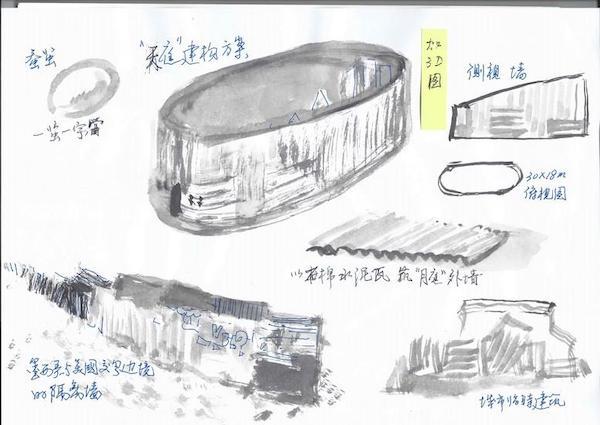 蚕茧
一茧一宇宙
“庭”建构方案
加
3D
图
側視 墙
30×18m
俯視图
以石棉水泥瓦 筑“月庭”外墙
墨西哥与美國交界边境
的隔离墙
城市临時建筑